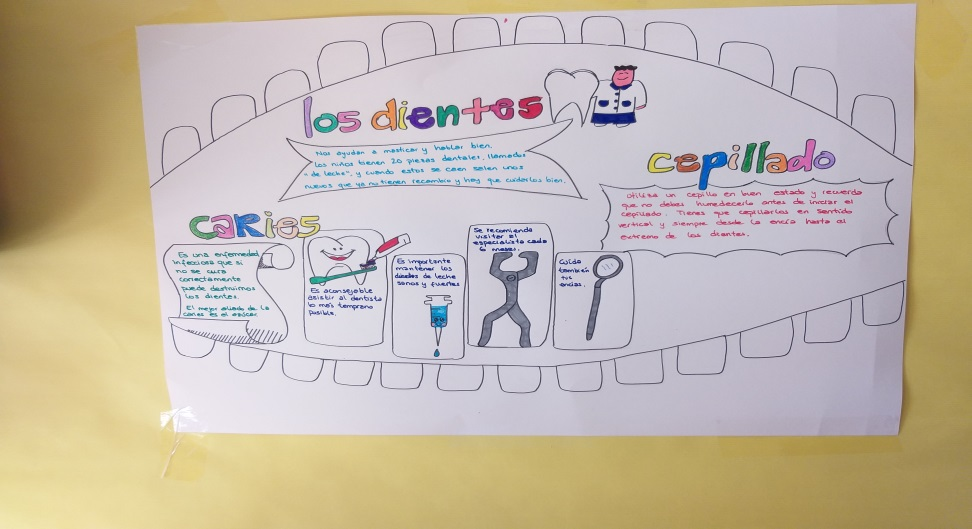 los dientes
Nos ayudan a masticar y hablar bien.
Los niños tienen 20 piesas dentales, llamados
"de leche", y cuando estos se caen salen unos
nuevos que ya no tienen recambio y hay que cuidarlos bien.
cepillado
Utiliza un cepillo en buen estado y recuerda
que no debes humedecerlo antes de iniciar el
cepillado. Tienes que cepillarlos en sentido
vertical y siempre desde la encía hasta el
extremo de los dientes.
caries
Es una enfermedad
infecciosa que si
no se cura
correctamente
puede destruirnos
los dientes.
El mejor aliado de la
caries es el azúcar
Es aconsejable
asistir al dentista
lo más temprano
posible.
Es importante
mantener los
dientes de leche
sanos y fuertes
Se recomienda
visitar al
especialista cada
6 meses.
Cuida
también
tus
encías.